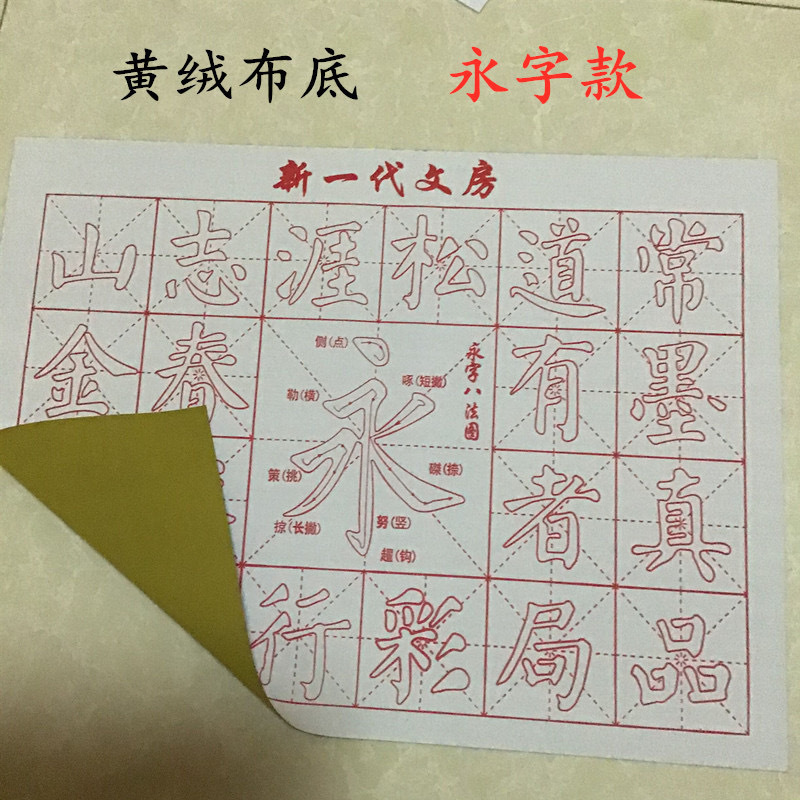 黄绒布底 永字款
新一代文房
山志涯松道常
金春
侧(点)
永字八法图
啄(短撇)
勒(横)
永
有墨
策(挑)
磔(捺)
掠(长撇)
努(竖)
趯(钩)
者真
行彩局品